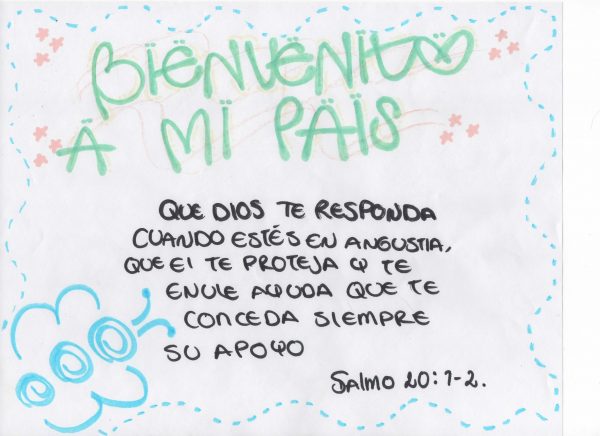 BIENVENIDO
A MI PAÏS
QUE DIOS TE RESPONDA
CUANDO ESTÉS EN ANGUSTIA,
QUE El TE PROTEJA Y TE
ENVIE AYUDA QUE TE
CONCEDA SIEMPRE
SU APOYO
Salmo 20:1-2.